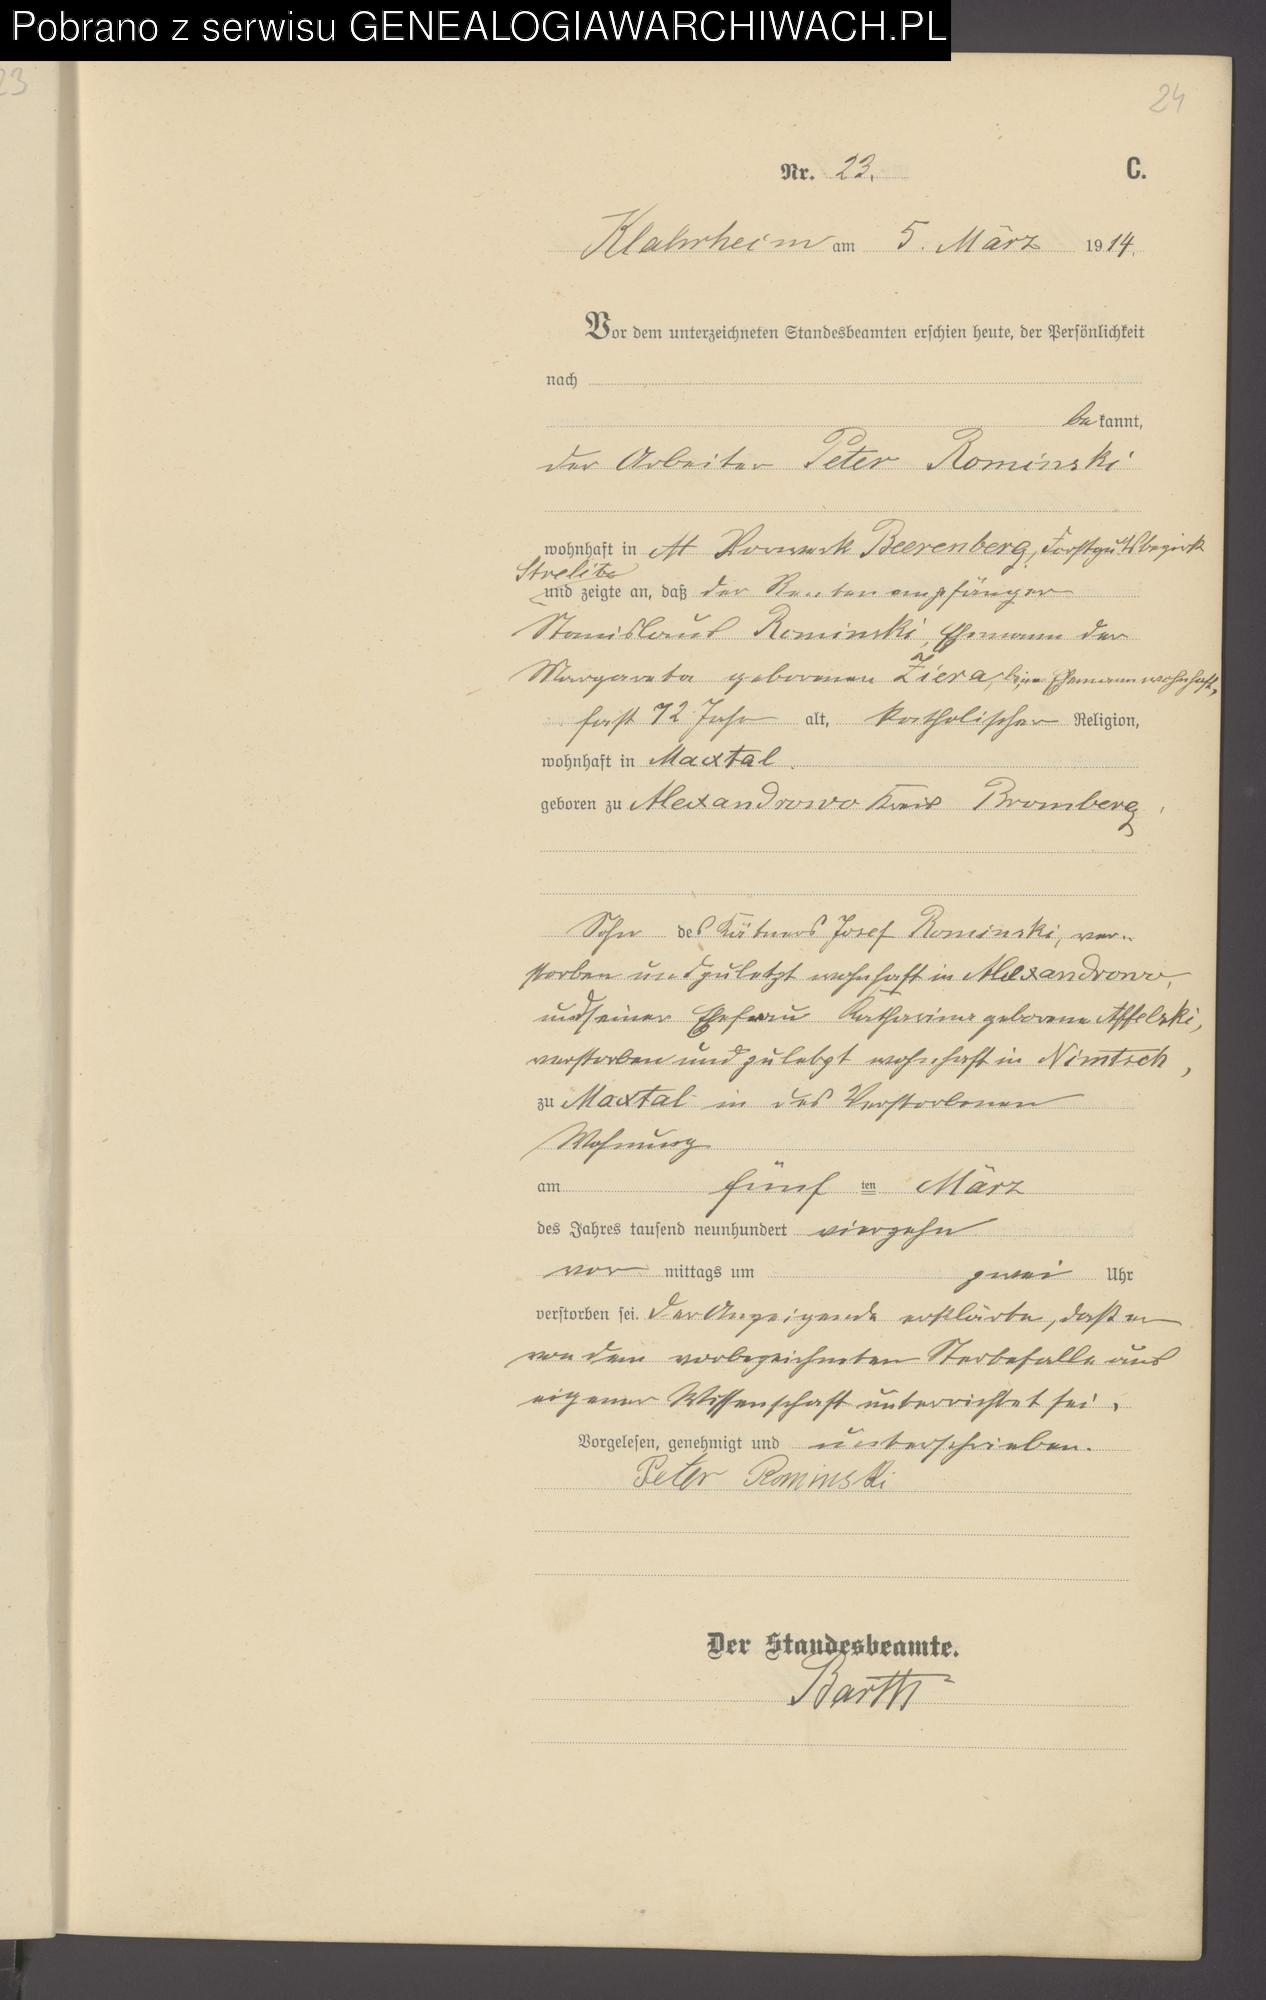 Pobrano z serwisu GENEALOGIAWARCHIWACH.PL
23
24
Nr. 23.
C.
Klahrheim am 5. März 1914.
Vor dem unterzeichneten Standesbeamten erschien heute, der Persönlichkeit
nach
bekannt,
der Arbeiter Peter Rominski
wohnhaft in Vorwerk Beerenberg, Forstgutsbezirk
Strelitz
und zeigte an, daß der Rentenempfänger
Stanislaus Rominski, Ehemann der
Margareta geborenen Ziera, beim Ehemann wohnhaft,
fast 72 Jahr alt, katholischer Religion,
wohnhaft in Maxtal.
geboren zu Alexandrowo Kreis Bromberg,
Sohn des Kätners Josef Rominski, ver-
storben und zuletzt wohnhaft in Alexandrowo,
und seiner Ehefrau Katharina geborene Affelski,
verstorben und zuletzt wohnhaft in Nimtsch,
zu Maxtal in des Verstorbenen
Wohnung
am fünf ten März
des Jahres tausend neunhundert vierzehn
vor mittags um zwei Uhr
verstorben sei. Der Anzeigende erklärte, daß er
von dem vorbezeichneten Sterbefalle aus
eigener Wissenschaft unterrichtet sei.
Vorgelesen, genehmigt und unterschrieben.
Peter Rominski
Der Standesbeamte.
Barth